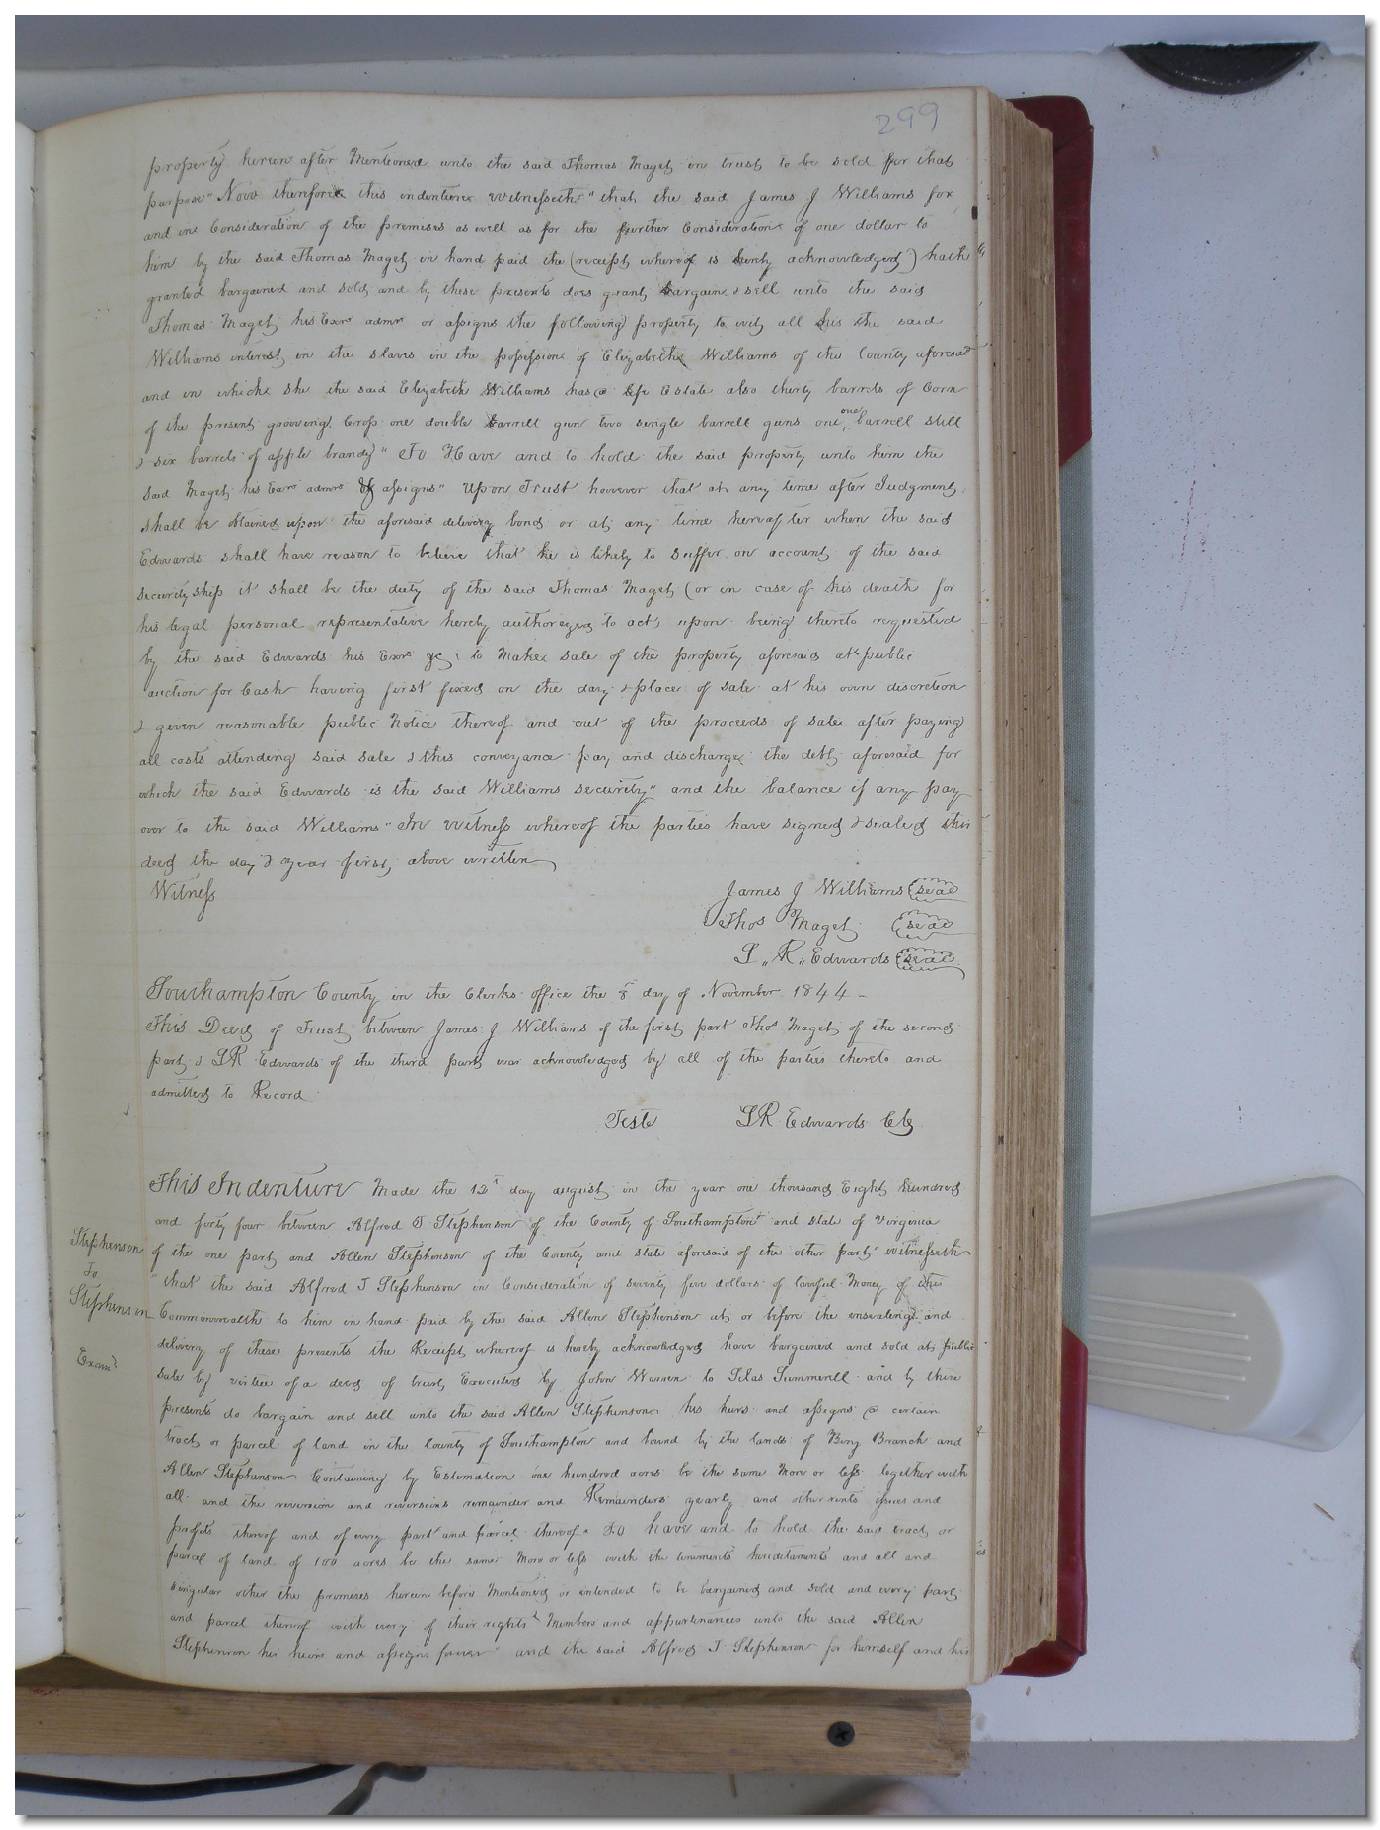 299
property herein after Mentioned unto the said Thomas Maget in trust to be sold for that
purpose" Now therefore this indenture witnesseth" that the said James J Williams for
and in Consideration of the premises as well as for the further Consideration of one dollar to
him by the said Thomas Maget in hand paid the (receipt whereof is hereby acknowledged) hath
granted bargained and sold and by these presents does grant bargain & sell unto the said
Thomas Maget his Exors admrs or assigns the following property to wit all his the said
Williams interest in the slaves in the possession of Elizabeth Williams of the County aforesaid
and in which she the said Elizabeth Williams has a life Estate also thirty barrels of Corn
of the present growing Crop one double barrell gun two single barrell guns one one barrell still
& six barrels of apple brandy" To Have and to hold the said property unto him the
said Maget his Exors admrs or assigns" Upon Trust however that at any time after Judgment
shall be obtained upon the aforesaid delivery bond or at any time hereafter when the said
Edwards shall have reason to believe that he is likely to suffer on account of the said
securityship it shall be the duty of the said Thomas Maget (or in case of his death for
his legal personal representative hereby authorized to act, upon being thereto requested
by the said Edwards his Exors &c, to Make sale of the property aforesaid at public
auction for Cash having first fixed on the day & place of sale at his own discretion
& given reasonable public Notice thereof and out of the proceeds of sale after paying
all costs attending said sale & this conveyance pay and discharge the debt aforesaid for
which the said Edwards is the said Williams security" and the balance if any pay
over to the said Williams" In witness whereof the parties have signed & sealed this
deed the day & year first above written
Witness James J Williams (seal)
Thos Maget (seal)
L "R" Edwards (seal)
Southampton County in the Clerks office the 8 day of November 1844 -
This Deed of Trust between James J Williams of the first part Thos Maget of the second
part & LR Edwards of the third part was acknowledged by all of the parties thereto and
admitted to Record
Teste LR Edwards Clk
This Indenture Made the 12t day august in the year one thousand Eight hundred
and forty four between Alfred T Stephenson of the County of Southampton and state of Virginia
Stephenson
To
Stephenson
Examd
of the one part and Allen Stephenson of the County and state aforesaid of the other part" witnesseth
that the said Alfred T Stephenson in Consideration of seventy five dollars of lawful Money of this
Commonwealth to him in hand paid by the said Allen Stephenson at or before the ensealing and
delivery of these presents the Receipt whereof is hereby acknowledged have bargained and sold at public
sale by virtue of a deed of trust Executed by John Warren to Silas Summerell and by these
presents do bargain and sell unto the said Allen Stephenson his heirs and assigns a certain
tract or parcel of land in the County of Southampton and bound by the lands of Branch and
Allen Stephenson Containing by Estimation one hundred acres be the same More or less together with
all and the reversion and reversions remainder and Remainders yearly and other rents issues and
profits thereof and of every part and parcel thereof" To have and to hold the said tract or
parcel of land of 100 acres be the same More or less with the tenements hereditaments and all and
singular other the premises herein before Mentioned or intended to be bargained and sold and every part
and parcel thereof with every of their rights Members and appurtenances unto the said Allen
Stephenson his heirs and assigns forever" and the said Alfred T Stephenson for himself and his